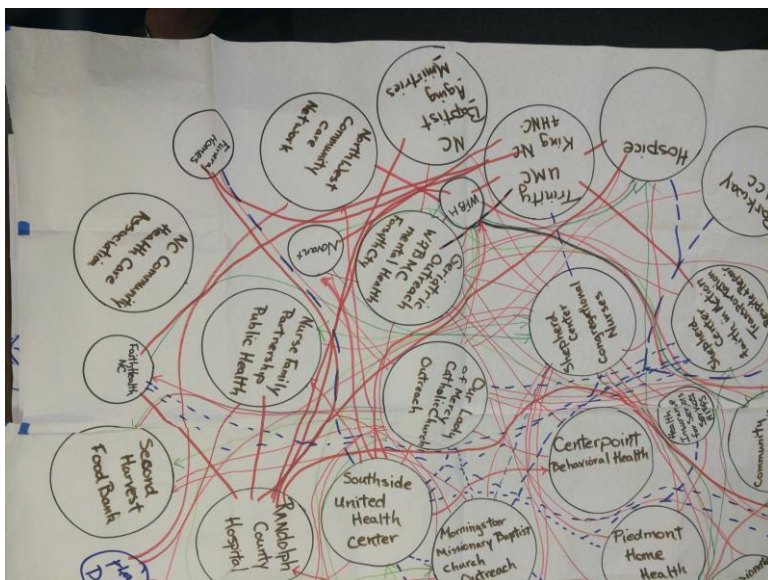 Funeral
Homes
North West
Community
Care
Network
NC
Baptist
Aging
Ministries
Trinity
UMC
King NC
4HNC
Hospice
Parkway
UCC
NC Community
Health Care
Association
Novant
WFBH
Geriatric
Outreach
WFBMC
mental Health
Forsyth Cty
Shepherd
Center
Congregational
Nurses
Shepherd
Center
Faith in Action
Transportation
Nurse Family
Partnership
Public Health
FaithHealth
NC
Our Lady
of Mercy
Catholic Church
Outreach
Second
Harvest
Food Bank
RANdolph
County
Hospital
Southside
United Health
Center
Centerpoint
Behavioral Health
Community
Morningstar
Missionary Baptist
Church
Outreach
Piedmont
Home
Health